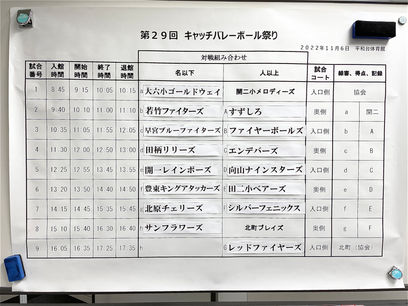 第29回 キャッチバレーボール祭り
2022年11月6日 平和台体育館
対戦組み合わせ
試合番号 入館時間 開始時間 終了時間 退館時間 名以下 人以上 試合コート 線審、得点、記録
1 8:45 9:15 10:05 10:15 a 大六小ゴールドウェイ 開二小メロディーズ 入口側 協会
2 9:40 10:10 11:00 11:10 b 若竹ファイターズ A すずしろ 奥側 a 開二
3 10:35 11:05 11:55 12:05 c 早宮ブルーファイターズ B ファイヤーボールズ 入口側 b A
4 11:30 12:00 12:50 13:00 d 田柄リリーズ C エンデバーズ 奥側 c B
5 12:25 12:55 13:45 13:55 e 開一レインボーズ D 向山ナインスターズ 入口側 d C
6 13:20 13:50 14:40 14:50 f 豊東キングアタッカーズ E 田二小ベアーズ 奥側 e D
7 14:15 14:45 15:35 15:45 g 北原チェリーズ F シルバーフェニックス 入口側 f E
8 15:10 15:40 16:30 16:40 h サンフラワーズ 北町ブレイズ 奥側 g F
9 16:05 16:35 17:25 17:35 h G レッドファイヤーズ 入口側 北町（協会）